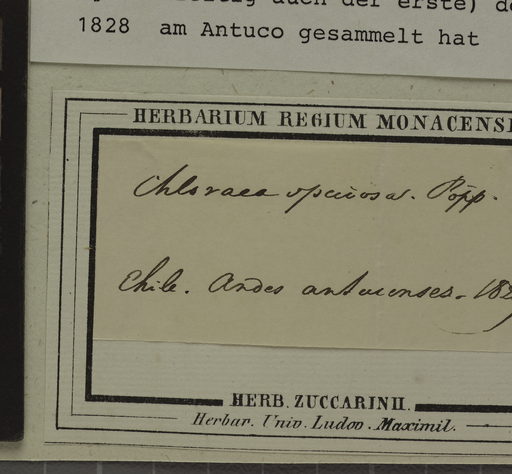 auch der erste)
1828 am Antuco gesammelt hat
HERBARIUM REGIUM MONACENS
Chloraea speciosa. Pöpp.
Chile. Andes antucenses. 182
HERB. ZUCCARINII.
Herbar. Univ. Ludov. Maximil.